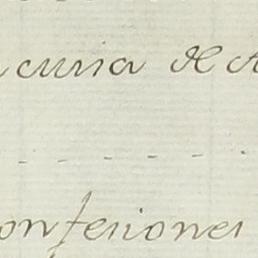 curia de
onfesiones